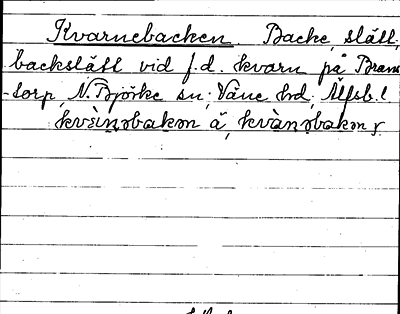 Kvarnebacken Backe, slätt,
backslätt vid f.d. kvarn på Brans
-torp, N. Björke sn; Väne hd; Älfsb. l
kvànəbakən